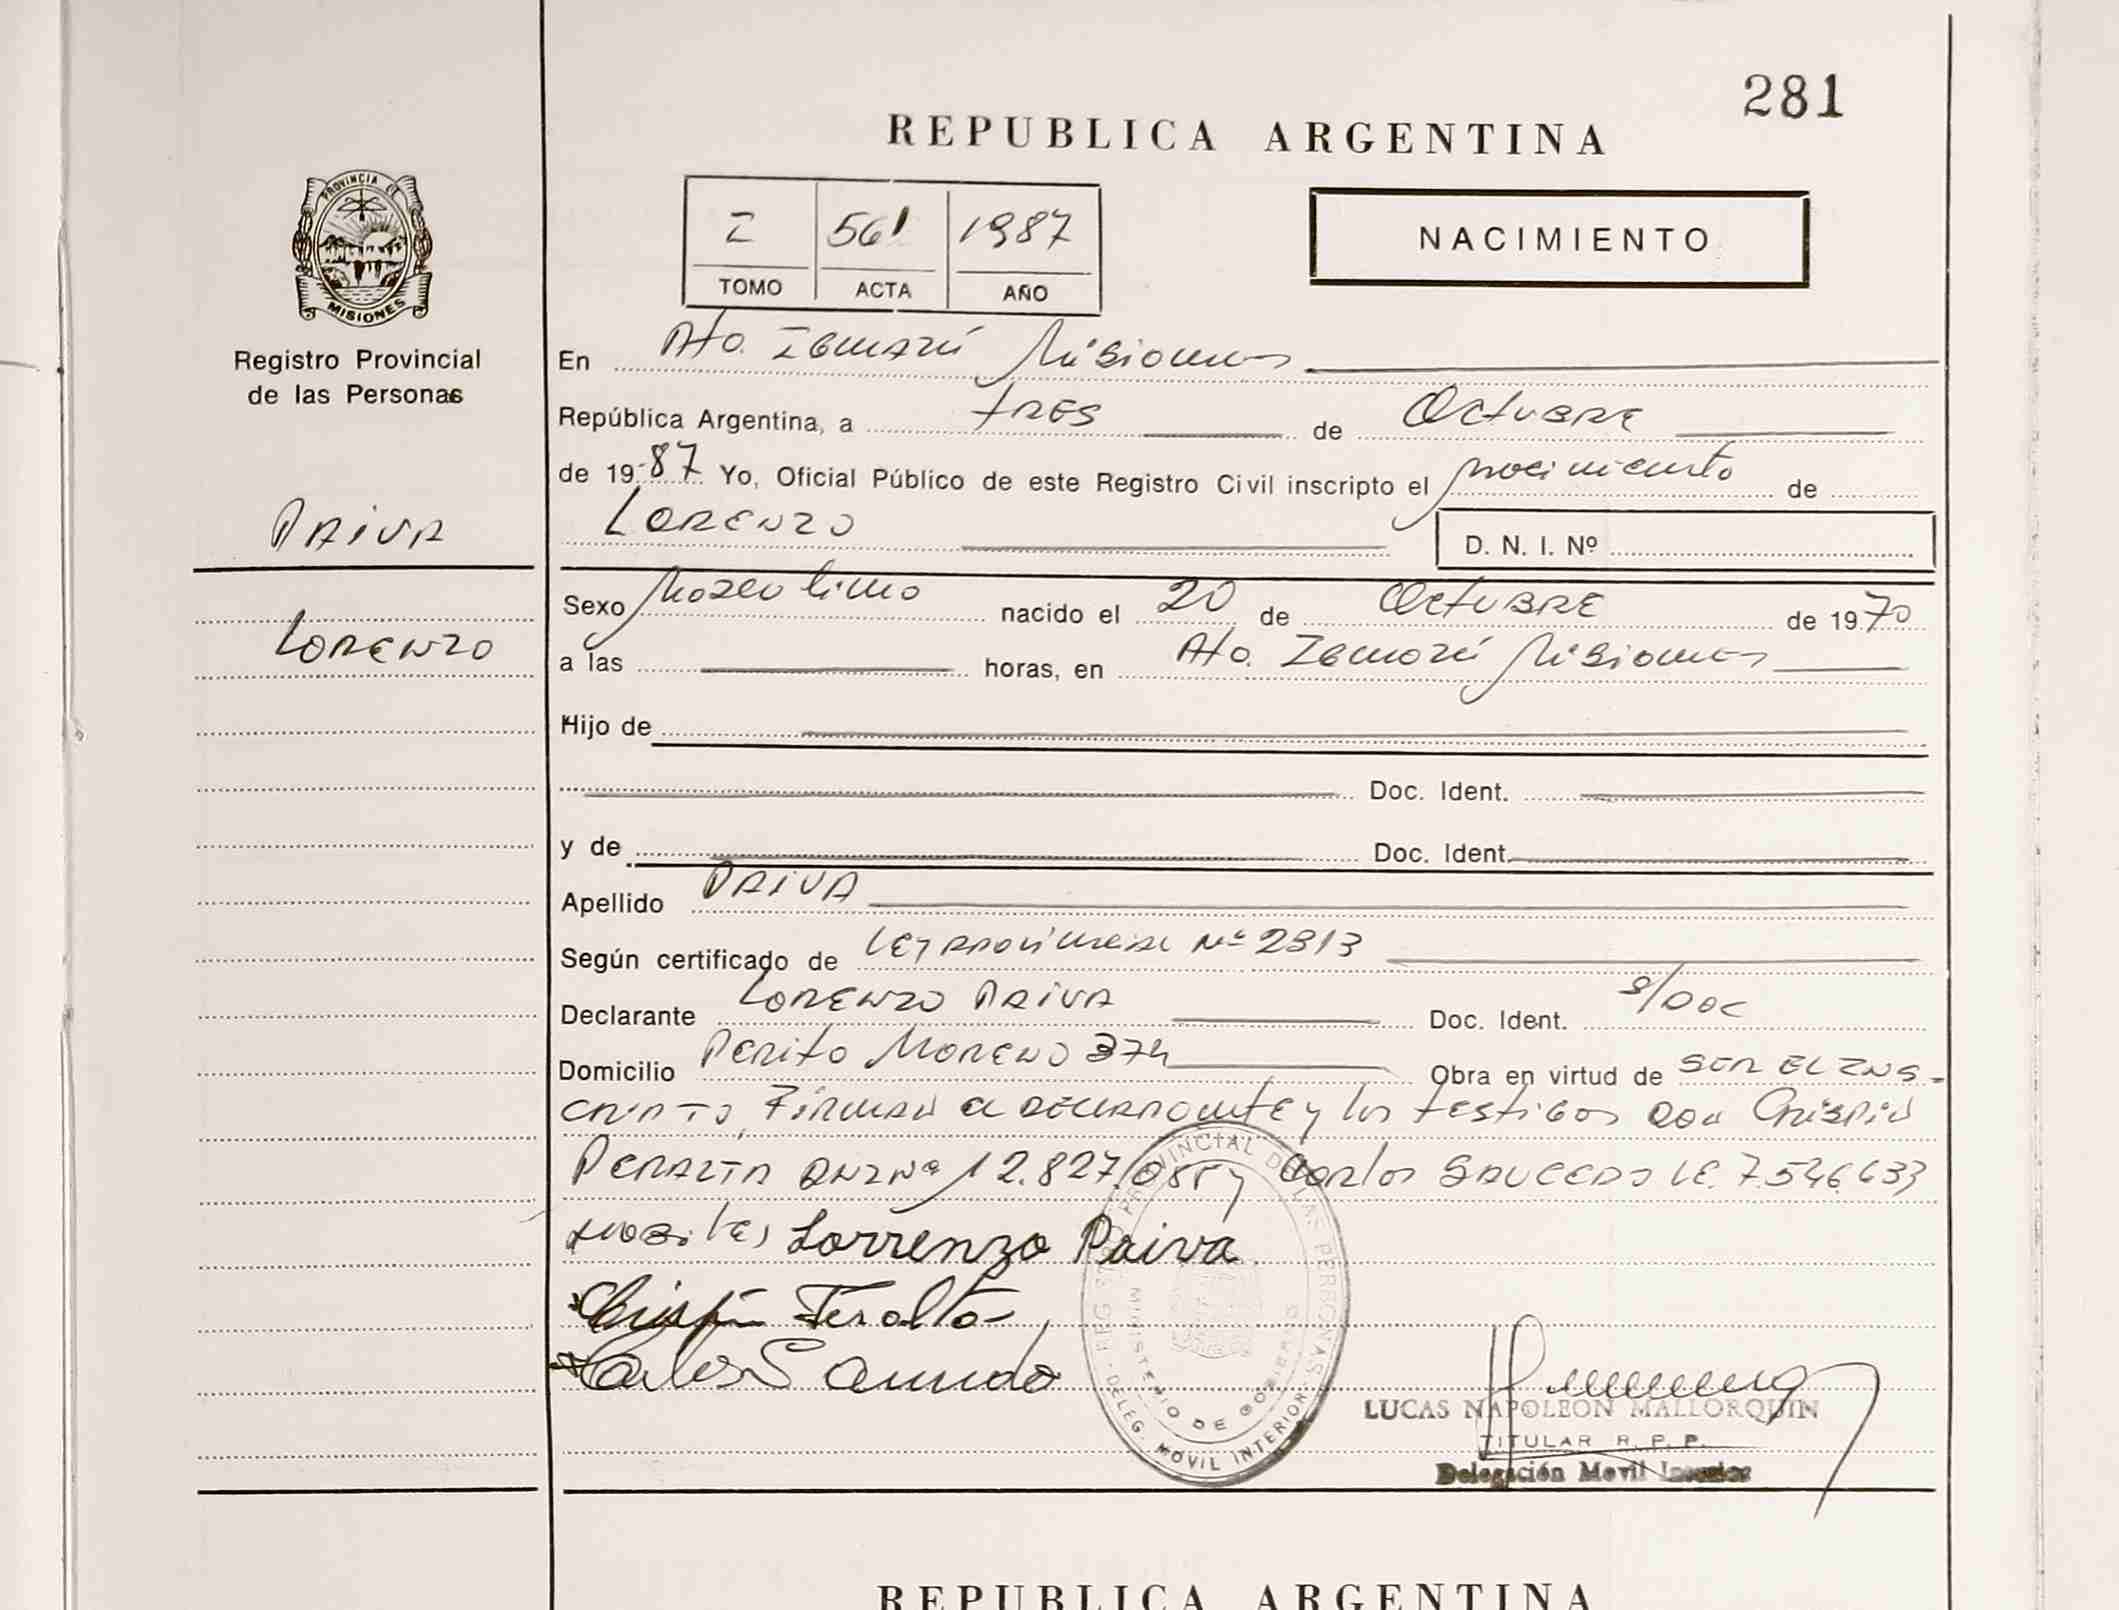 281
REPUBLICA ARGENTINA
I 561 1987
TOMO ACTA AÑO
NACIMIENTO
PROVINCIA DE
MISIONES
Registro Provincial
de las Personas
PAIVA
LORENZO
En Pto. Iguazú Misiones
República Argentina, a tres de Octubre
de 1987 Yo, Oficial Público de este Registro Civil inscripto el nacimiento de
LORENZO
D. N. I. Nº
Sexo Masculino nacido el 20 de Octubre de 1970
a las horas, en Pto. Iguazú Misiones
Hijo de
Doc. Ident.
y de Doc. Ident.
Apellido PAIVA
Según certificado de Ley Provincial Nº 2313
Declarante LORENZO PAIVA Doc. Ident. s/Doc
Domicilio Perito Moreno 374 Obra en virtud de ser el ins-
cripto, Firman el declarante y los testigos Don Crispin
Peralta DNI Nº 12.827.085 y Carlos Saucedo LE. 7.546.633
Lorrenzo Paiva
Crispín Peralta
Carlos Saucedo
REGISTRO PROVINCIAL DE LAS PERSONAS
MINISTERIO DE GOBIERNO
DELEG. MOVIL INTERIOR
LUCAS NAPOLEON MALLORQUIN
TITULAR R. P. P.
Delegación Movil Interior
REPUBLICA ARGENTINA